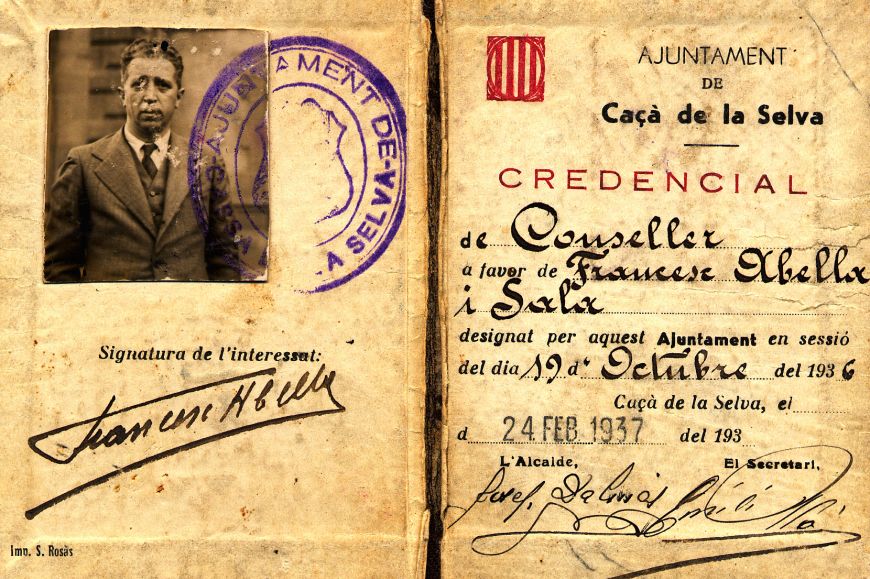 AJUNTAMENT DE
CASSA
LA SELVA
Signatura de l'interessat:
Francesc Abella
Imp. S. Rosàs
AJUNTAMENT
DE
Caçà de la Selva
CREDENCIAL
de Conseller
a favor de Francesc Abella
i Sala
designat per aquest Ajuntament en sessió
del dia 19 d' Octubre del 1936
Caçà de la Selva, el
d 24 FEB 1937 del 193
L'Alcalde, El Secretari,
Josep Dalmàs